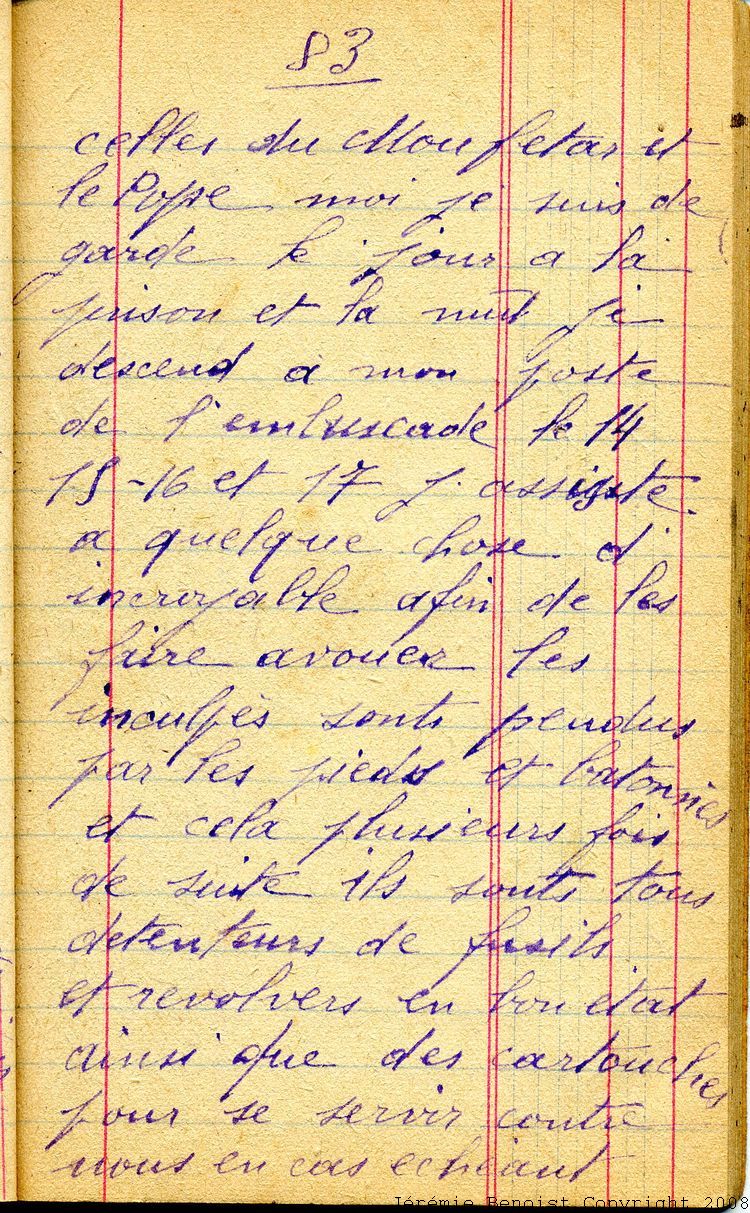 83
celles du Moufetar et
le Pope moi je suis de
garde le jour a la
prison et la nuit je
descend a mon poste
de l'embuscade le 14
15-16 et 17 j. assiste
a quelque chose d'
incroyable afin de les
faire avouer les
inculpès sonts pendus
par les pieds et batonnès
et cela plusieurs fois
de suite ils sonts tous
detenteurs de fusils
et revolvers en bon état
ainsi que des cartouches
pour se servir contre
nous en cas echéant
Jérémie Benoist Copyright 2008